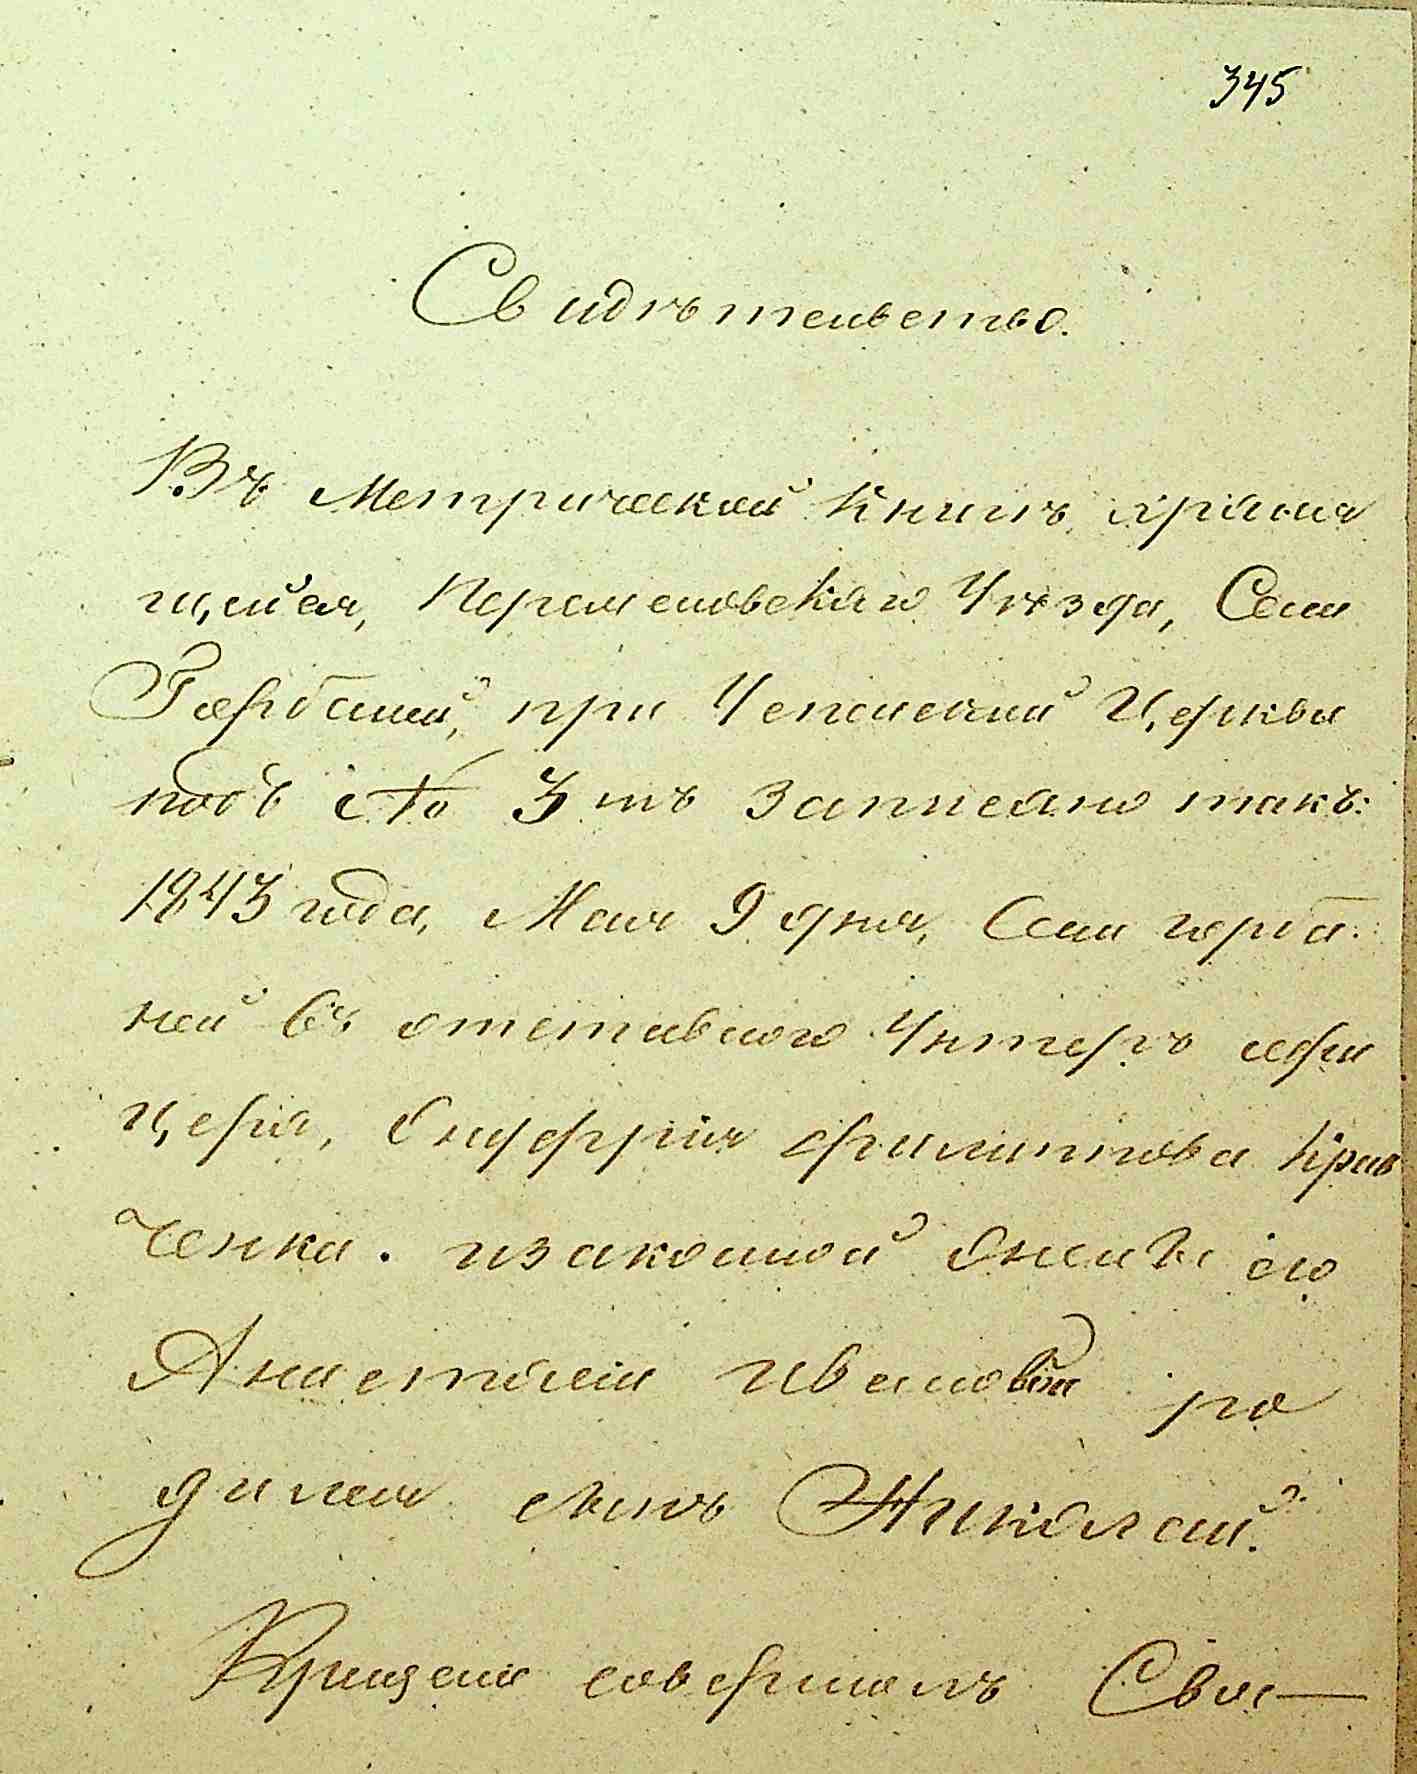 345
Свидѣтельство.
Въ Метрической Книгѣ храня
щейся, Переяславскаго Уѣзда, Села
Горбаней, при Успенской Церкви
подъ № 3 мъ записано такъ:
1843 года, Мая 9 дня, Села горба-
ней въ отставного Унтеръ офи
цера, Онуффрія Филиппова Крав
ченка. изаконной жены его
Анастасіи Ивановой ро
дился сынъ Николай.
Крещеніе совершалъ Свя—